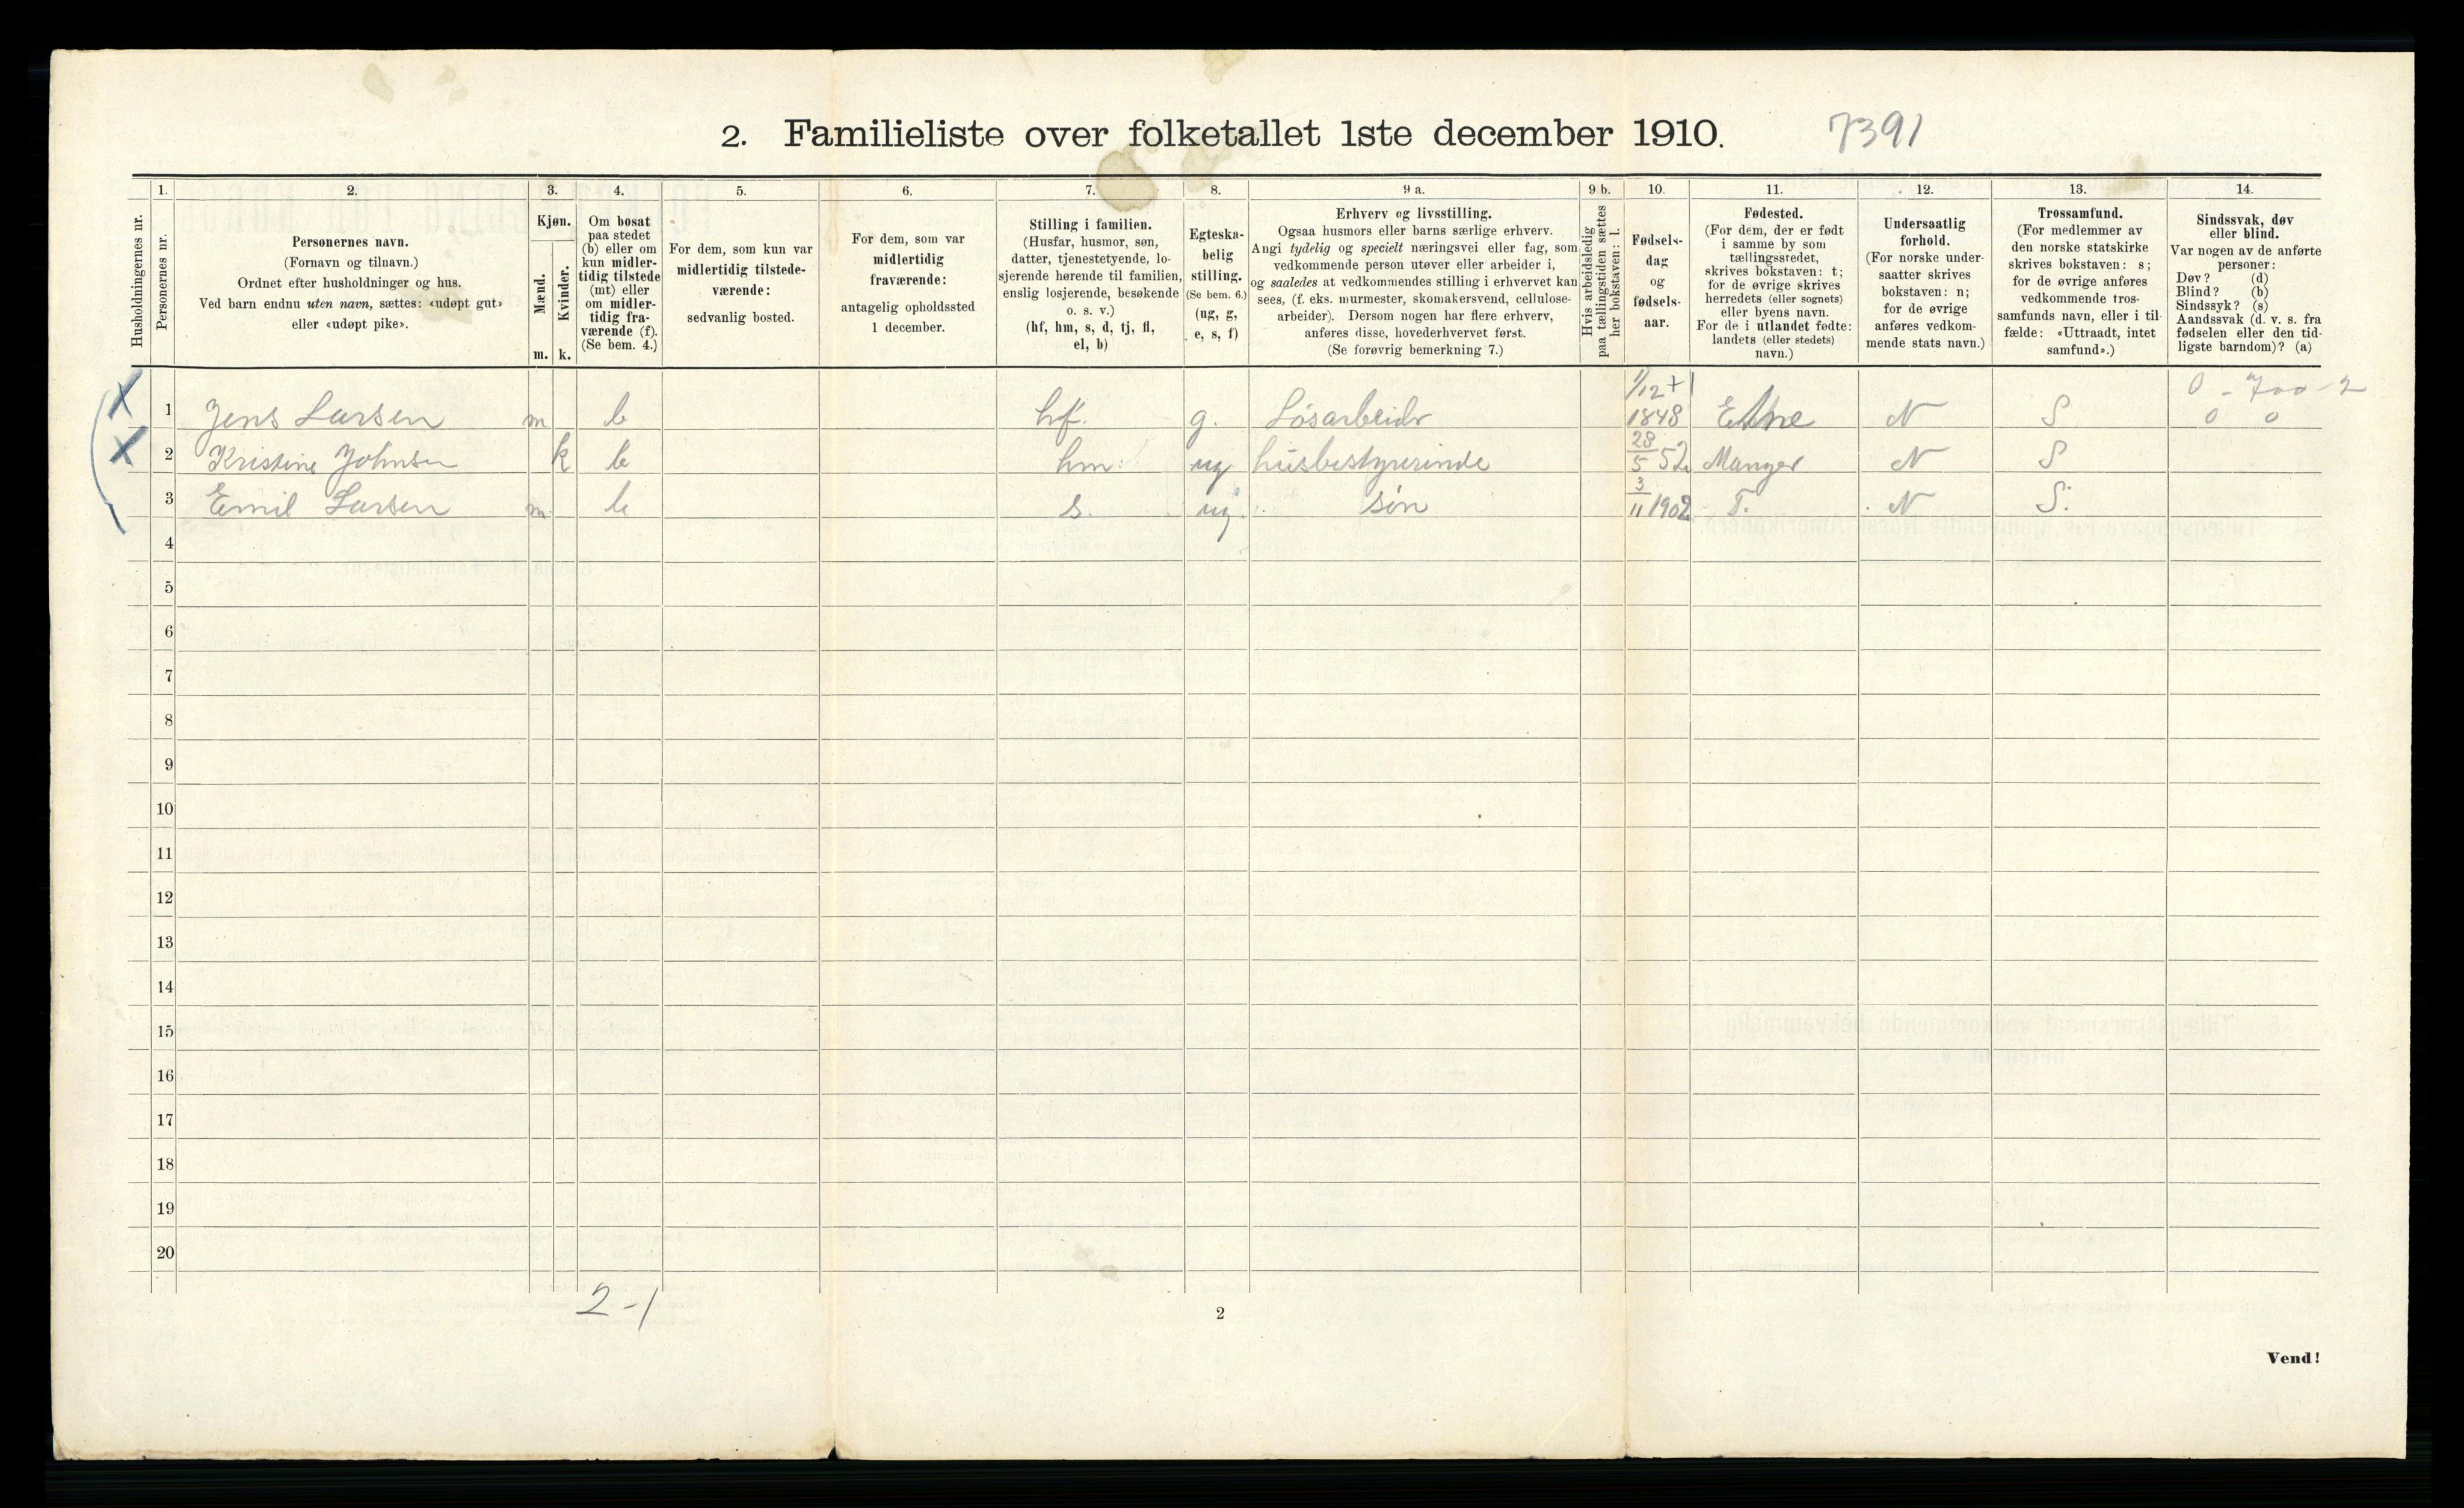 2. Familieliste over folketallet 1ste december 1910. 7391
1. 2. 3. 4. 5. 6. 7. 8. 9 a. 9 b. 10. 11. 12. 13. 14.
Husholdningernes nr.
Personernes nr.
Personernes navn.
(Fornavn og tilnavn.)
Ordnet efter husholdninger og hus.
Ved barn endnu uten navn, sættes: «udøpt gut»
eller «udøpt pike».
Kjøn.
Mænd.
Kvinder.
m. k.
Om bosat
paa stedet
(b) eller om
kun midler-
tidig tilstede
(mt) eller
om midler-
tidig fra-
værende (f).
(Se bem. 4.)
For dem, som kun var
midlertidig tilstede-
værende:
sedvanlig bosted.
For dem, som var
midlertidig
fraværende:
antagelig opholdssted
1 december.
Stilling i familien.
(Husfar, husmor, søn,
datter, tjenestetyende, lo-
sjerende hørende til familien,
enslig losjerende, besøkende
o. s. v.)
(hf, hm, s, d, tj, fl,
el, b)
Egteska-
belig
stilling.
(Se bem. 6.)
(ug, g,
e, s, f)
Erhverv og livsstilling.
Ogsaa husmors eller barns særlige erhverv.
Angi tydelig og specielt næringsvei eller fag, som
vedkommende person utøver eller arbeider i,
og saaledes at vedkommendes stilling i erhvervet kan
sees, (f. eks. murmester, skomakersvend, cellulose-
arbeider). Dersom nogen har flere erhverv,
anføres disse, hovederhvervet først.
(Se forøvrig bemerkning 7.)
Hvis arbeidsledig
paa tællingstiden sættes
her bokstaven: l.
Fødsels-
dag
og
fødsels-
aar.
Fødested.
(For dem, der er født
i samme by som
tællingsstedet,
skrives bokstaven: t;
for de øvrige skrives
herredets (eller sognets)
eller byens navn.
For de i utlandet fødte:
landets (eller stedets)
navn.)
Undersaatlig
forhold.
(For norske under-
saatter skrives
bokstaven: n;
for de øvrige
anføres vedkom-
mende stats navn.)
Trossamfund.
(For medlemmer av
den norske statskirke
skrives bokstaven: s;
for de øvrige anføres
vedkommende tros-
samfunds navn, eller i til-
fælde: «Uttraadt, intet
samfund».)
Sindssvak, døv
eller blind.
Var nogen av de anførte
personer:
Døv? (d)
Blind? (b)
Sindssyk? (s)
Aandssvak (d. v. s. fra
fødselen eller den tid-
ligste barndom)? (a)
0 - 700 - 2
X 1 Jens Larsen m b hf. g. Løsarbeidr 1/12 + 1848 Etne N S 0 0
X 2 Kristine Johnsen k b hm. ug husbestyrerinde 28/5 52 Manger N S
3 Emil Larsen m. b s. ug. søn 3/11 1902 T. N S.
4
5
6
7
8
9
10
11
12
13
14
15
16
17
18
19
20
2-1
2
Vend!